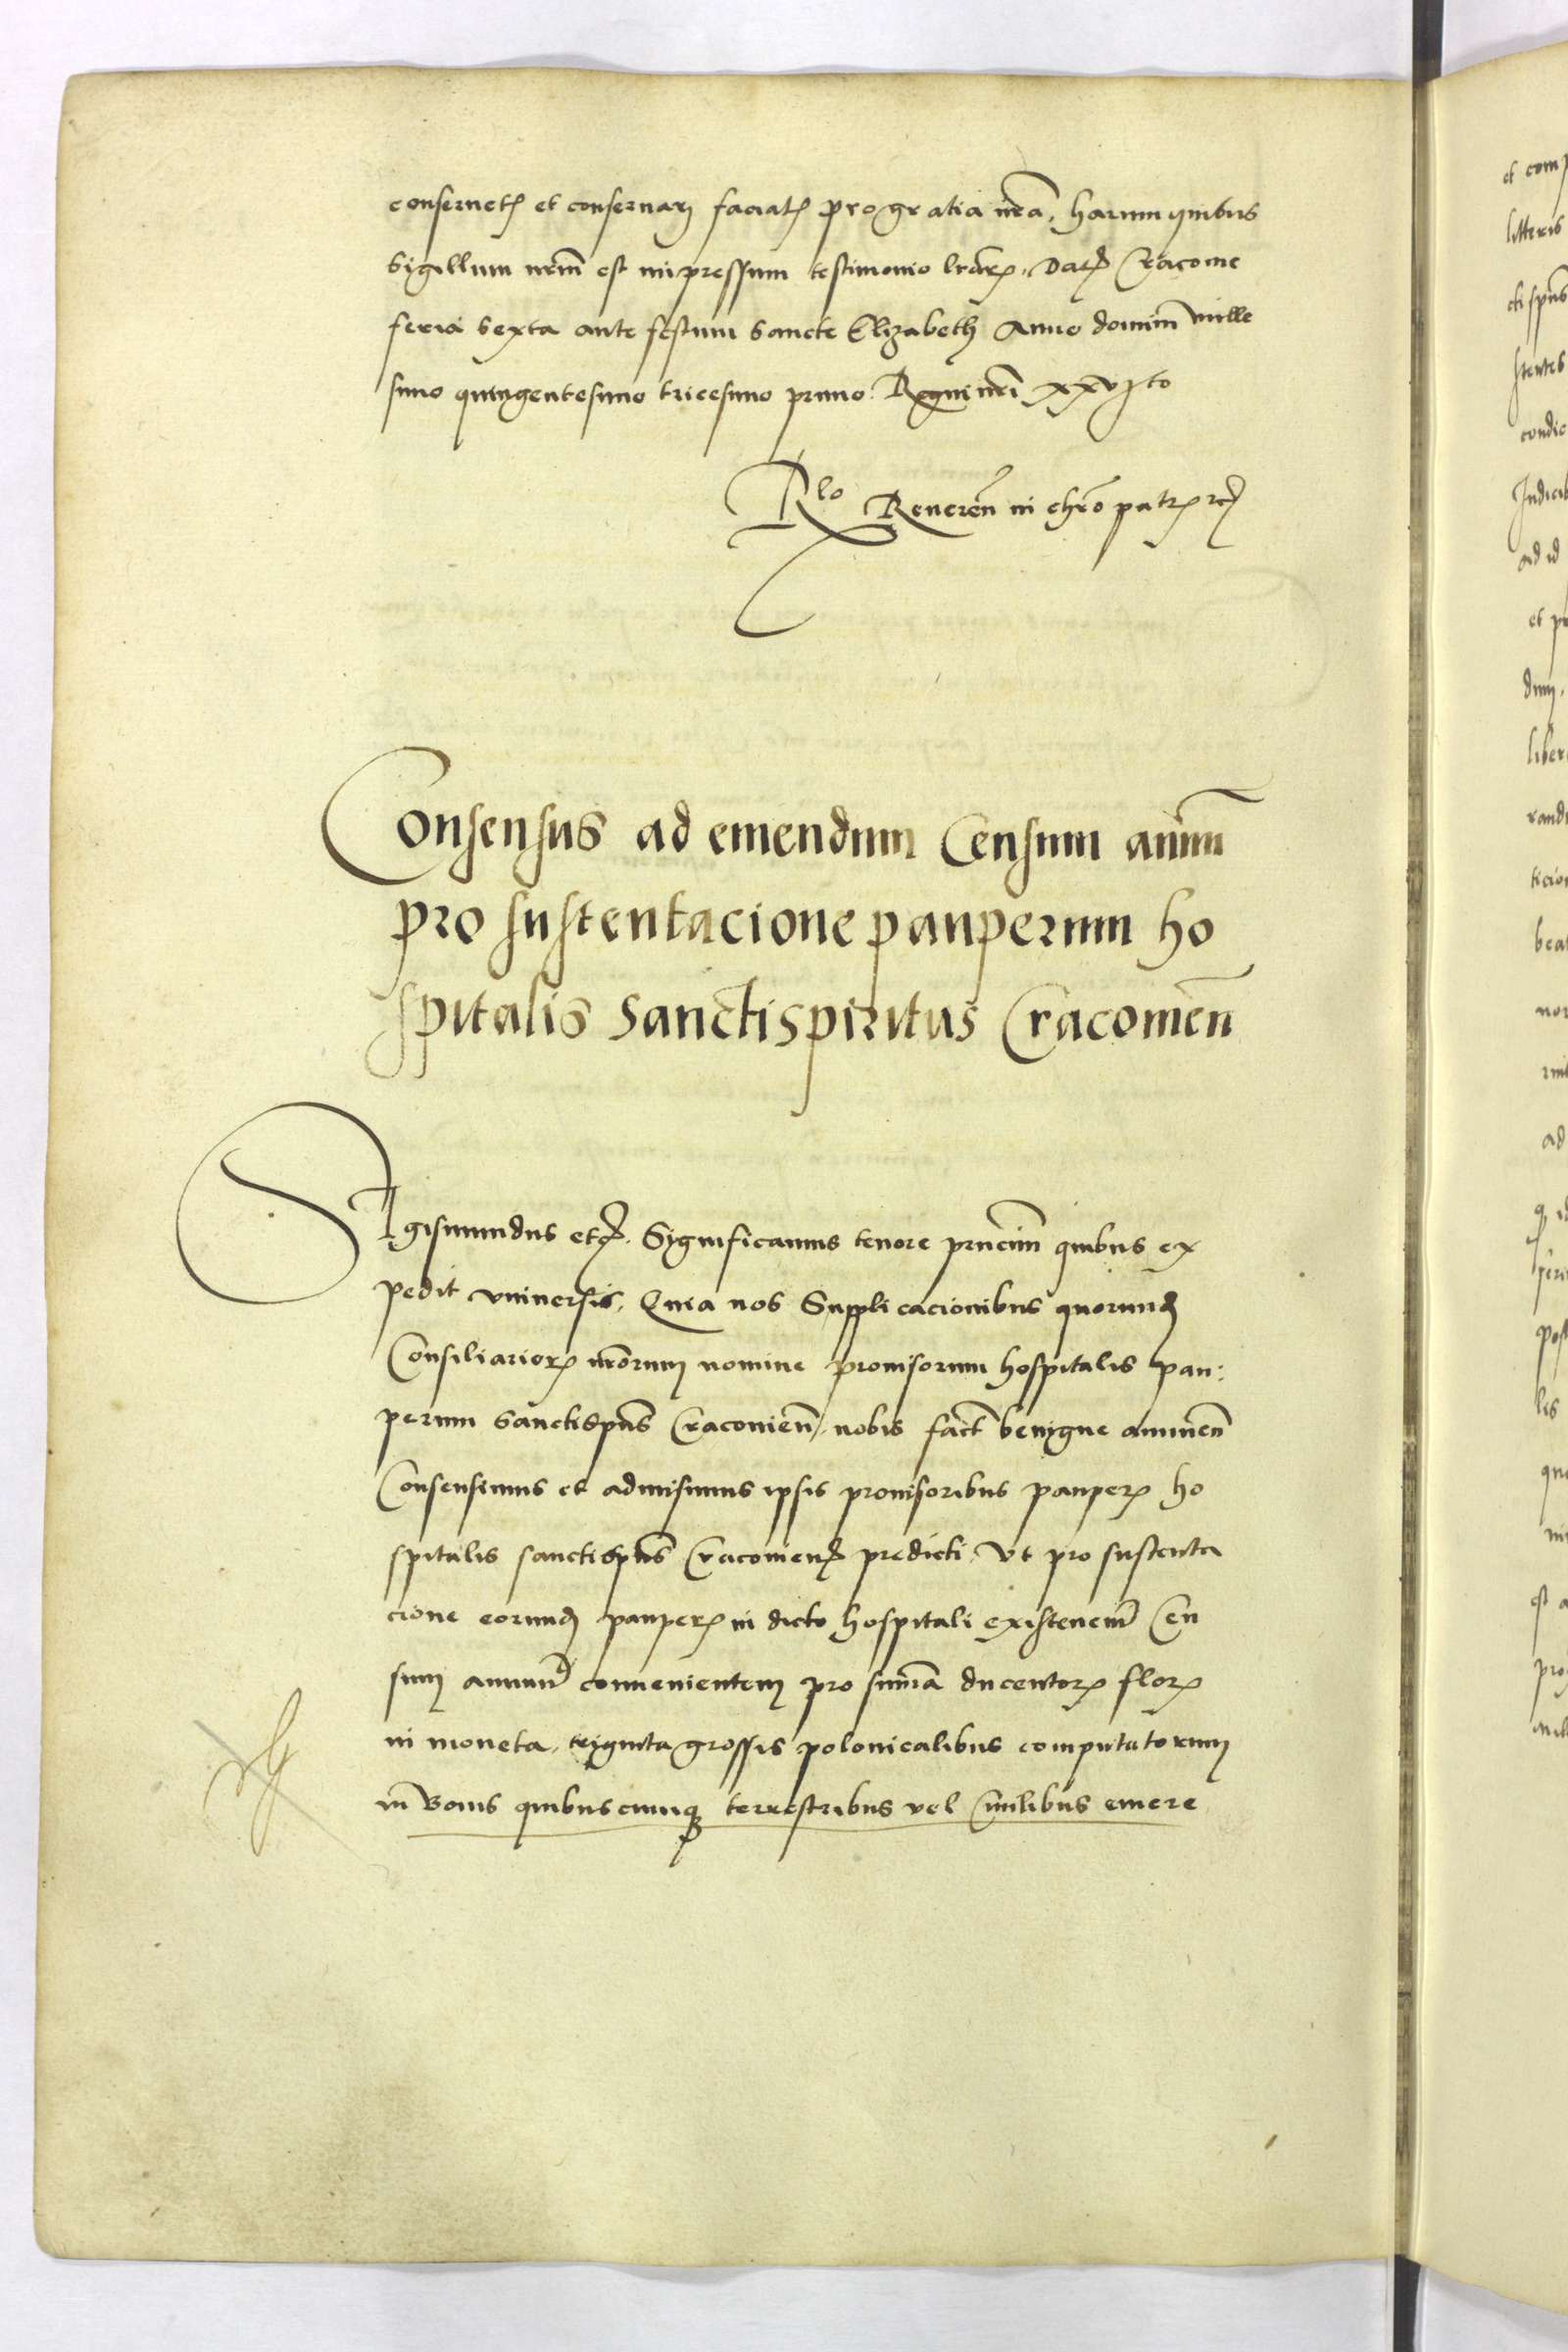 conservetis et conservari faciatis pro gratia nra, harum quibus
Sigillum nrm est impressum testimonio lrarum. Dat Cracovie
feria sexta ante festum Sancte Elizabeth Anno domini mille
simo quingentesimo tricesimo primo. Regni nri xxvto
Rlo Reveren in chro patris etc
Consensus ad emendum Censum annm
pro sustentacione pauperum ho
spitalis Sanctispiritus Cracovien
Sigismundus etc. Significamus tenore prncim quibus ex
pedit universis. Quia nos Supplicacionibus quorund
Consiliariorum nrorum nomine provisorum hospitalis pau:
perum Sanctispus Cracovien, nobis fact benigne annuen
Consensimus et admisimus ipsis provisoribus pauperum ho
spitalis sanctispus Cracovien predicti, Vt pro sustenta
cione eorund pauperum in dicto hospitali existencium Cen
sum annuum convenientem pro summa ducentorum florum
in moneta, triginta grossis polonicalibus computatorum
in Bonis quibuscumque terrestribus vel Civilibus emere
et com
litteris
cti spus
condic
Judici
ad id
et p
liber
rand
beat
ad
post
lis